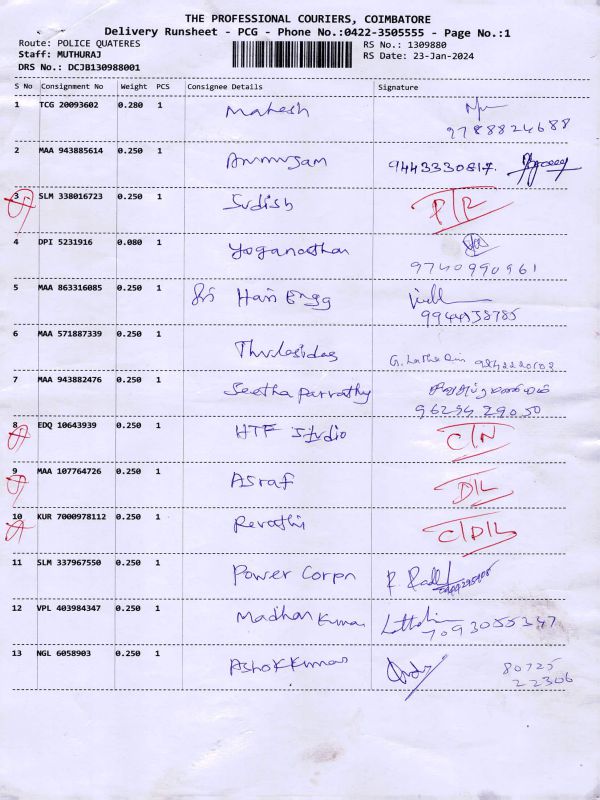 THE PROFESSIONAL COURIERS, COIMBATORE
Delivery Runsheet - PCG - Phone No.:0422-3505555 - Page No.:1
Route: POLICE QUATERES RS No.: 1309880
Staff: MUTHURAJ RS Date: 23-Jan-2024
DRS No.: DCJB130988001
S No Consignment No Weight PCS Consignee Details Signature
1 TCG 20093602 0.280 1 Mahesh
9788824688
2 MAA 943885614 0.250 1 9443330817.
3 SLM 338016723 0.250 1 Sudish
4 DPI 5231916 0.080 1 Yoganathan
9740990961
5 MAA 863316085 0.250 1 Sri Hari Engg
6 MAA 571887339 0.250 1 Thulasidas
7 MAA 943882476 0.250 1 Seetha Parvathy
96294 29050
8 EDQ 10643939 0.250 1 HTF Studio C/N
9 MAA 107764726 0.250 1 Asraf D/L
10 KUR 7000978112 0.250 1 Revathi C/D/L
11 SLM 337967550 0.250 1 Power Corpn
12 VPL 403984347 0.250 1 Madhan Kumar
7093055347
13 NGL 6058903 0.250 1 Ashok Kumar 80725
22306